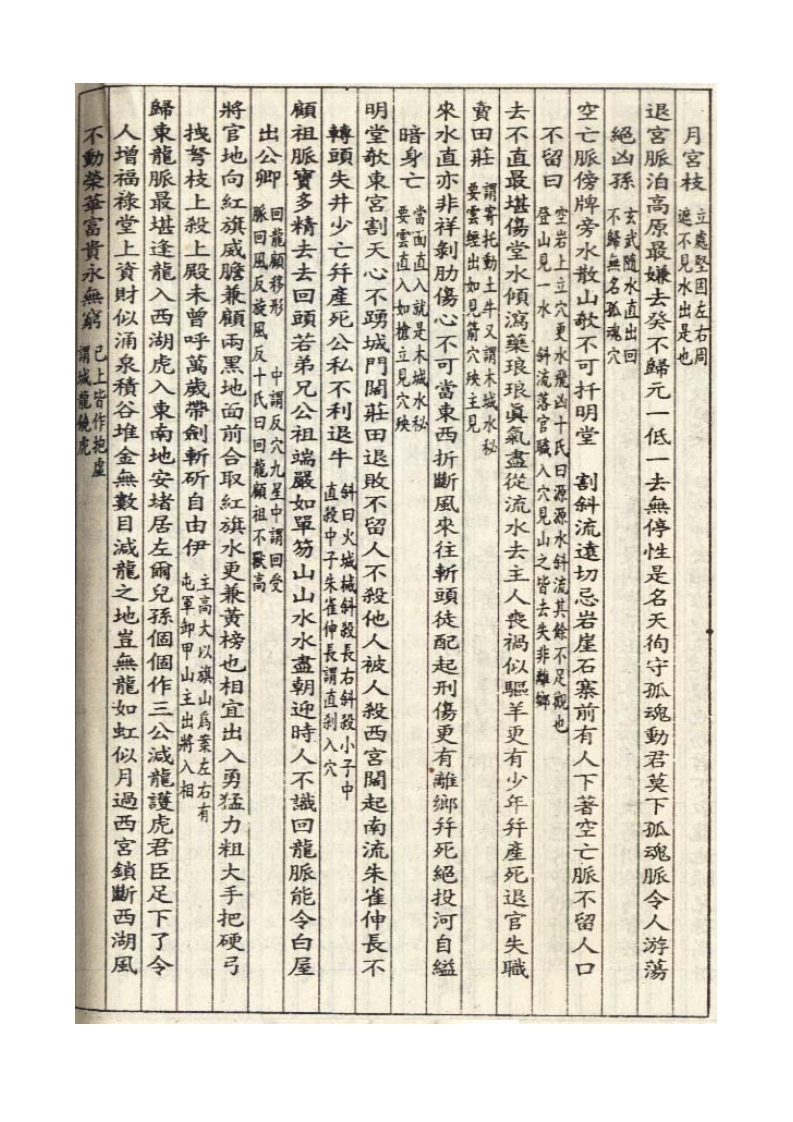 月宮枝 立處堅固左右周
遮不見水出是也
退宮脈泊高原最嫌去癸不歸元一低一去無停性是名天徇守孤魂動君莫下孤魂脈令人游蕩
絕凶孫 玄武隨水直出回
不歸無名孤魂穴
空亡脈傍牌旁水散山欹不可扦明堂 割斜流遠切忌岩崖石寨前有人下著空亡脈不留人口
不留曰 空岩上立穴更水飛凶十氏曰源源水斜流其餘不足觀也
登山見一水 斜流落官驗入穴見山之皆去失非離鄉
去不直最堪傷堂水傾瀉藥琅琅眞氣盡從流水去主人喪禍似驅羊更有少年幷產死退官失職
賣田莊 謂寄托動土牛又謂木城水秘
要雲經出如見箭穴殃主見
來水直亦非祥剝肋傷心不可當東西折斷風來往斬頭徒配起刑傷更有離鄉幷死絕投河自縊
暗身亡 當面直入就是木城水秘
要雲直入如槍立見穴殃
明堂欹東宮割天心不踴城門闊莊田退敗不留人不殺他人被人殺西宮闊起南流朱雀伸長不
轉頭失井少亡幷產死公私不利退牛 斜曰火城械斜殺長右斜殺小子中
直殺中子朱雀伸長謂直剎入穴
顧祖脈寶多精去去回頭若弟兄公祖端嚴如單笏山山水水盡朝迎時人不識回龍脈能令白屋
出公卿 回龍顧移形 中謂反穴九星中謂回受
脈回風反旋風反十氏曰回龍顧祖不歎高
將官地向紅旗威膽兼顧兩黑地面前合取紅旗水更兼黃榜也相宜出入勇猛力粗大手把硬弓
拽弩枝上殺上殿未曾呼萬歲帶劍斬斫自由伊 主高大以旗山為案左右有
屯軍卸甲山主出將入相
歸東龍脈最堪逢龍入西湖虎入東南地安堵居左爾兒孫個個作三公減龍護虎君臣足下了令
人增福祿堂上資財似涌泉積谷堆金無數目減龍之地豈無龍如虹似月過西宮鎖斷西湖風
不動榮華富貴永無窮 已上皆作抱虛
謂城龍饒虎